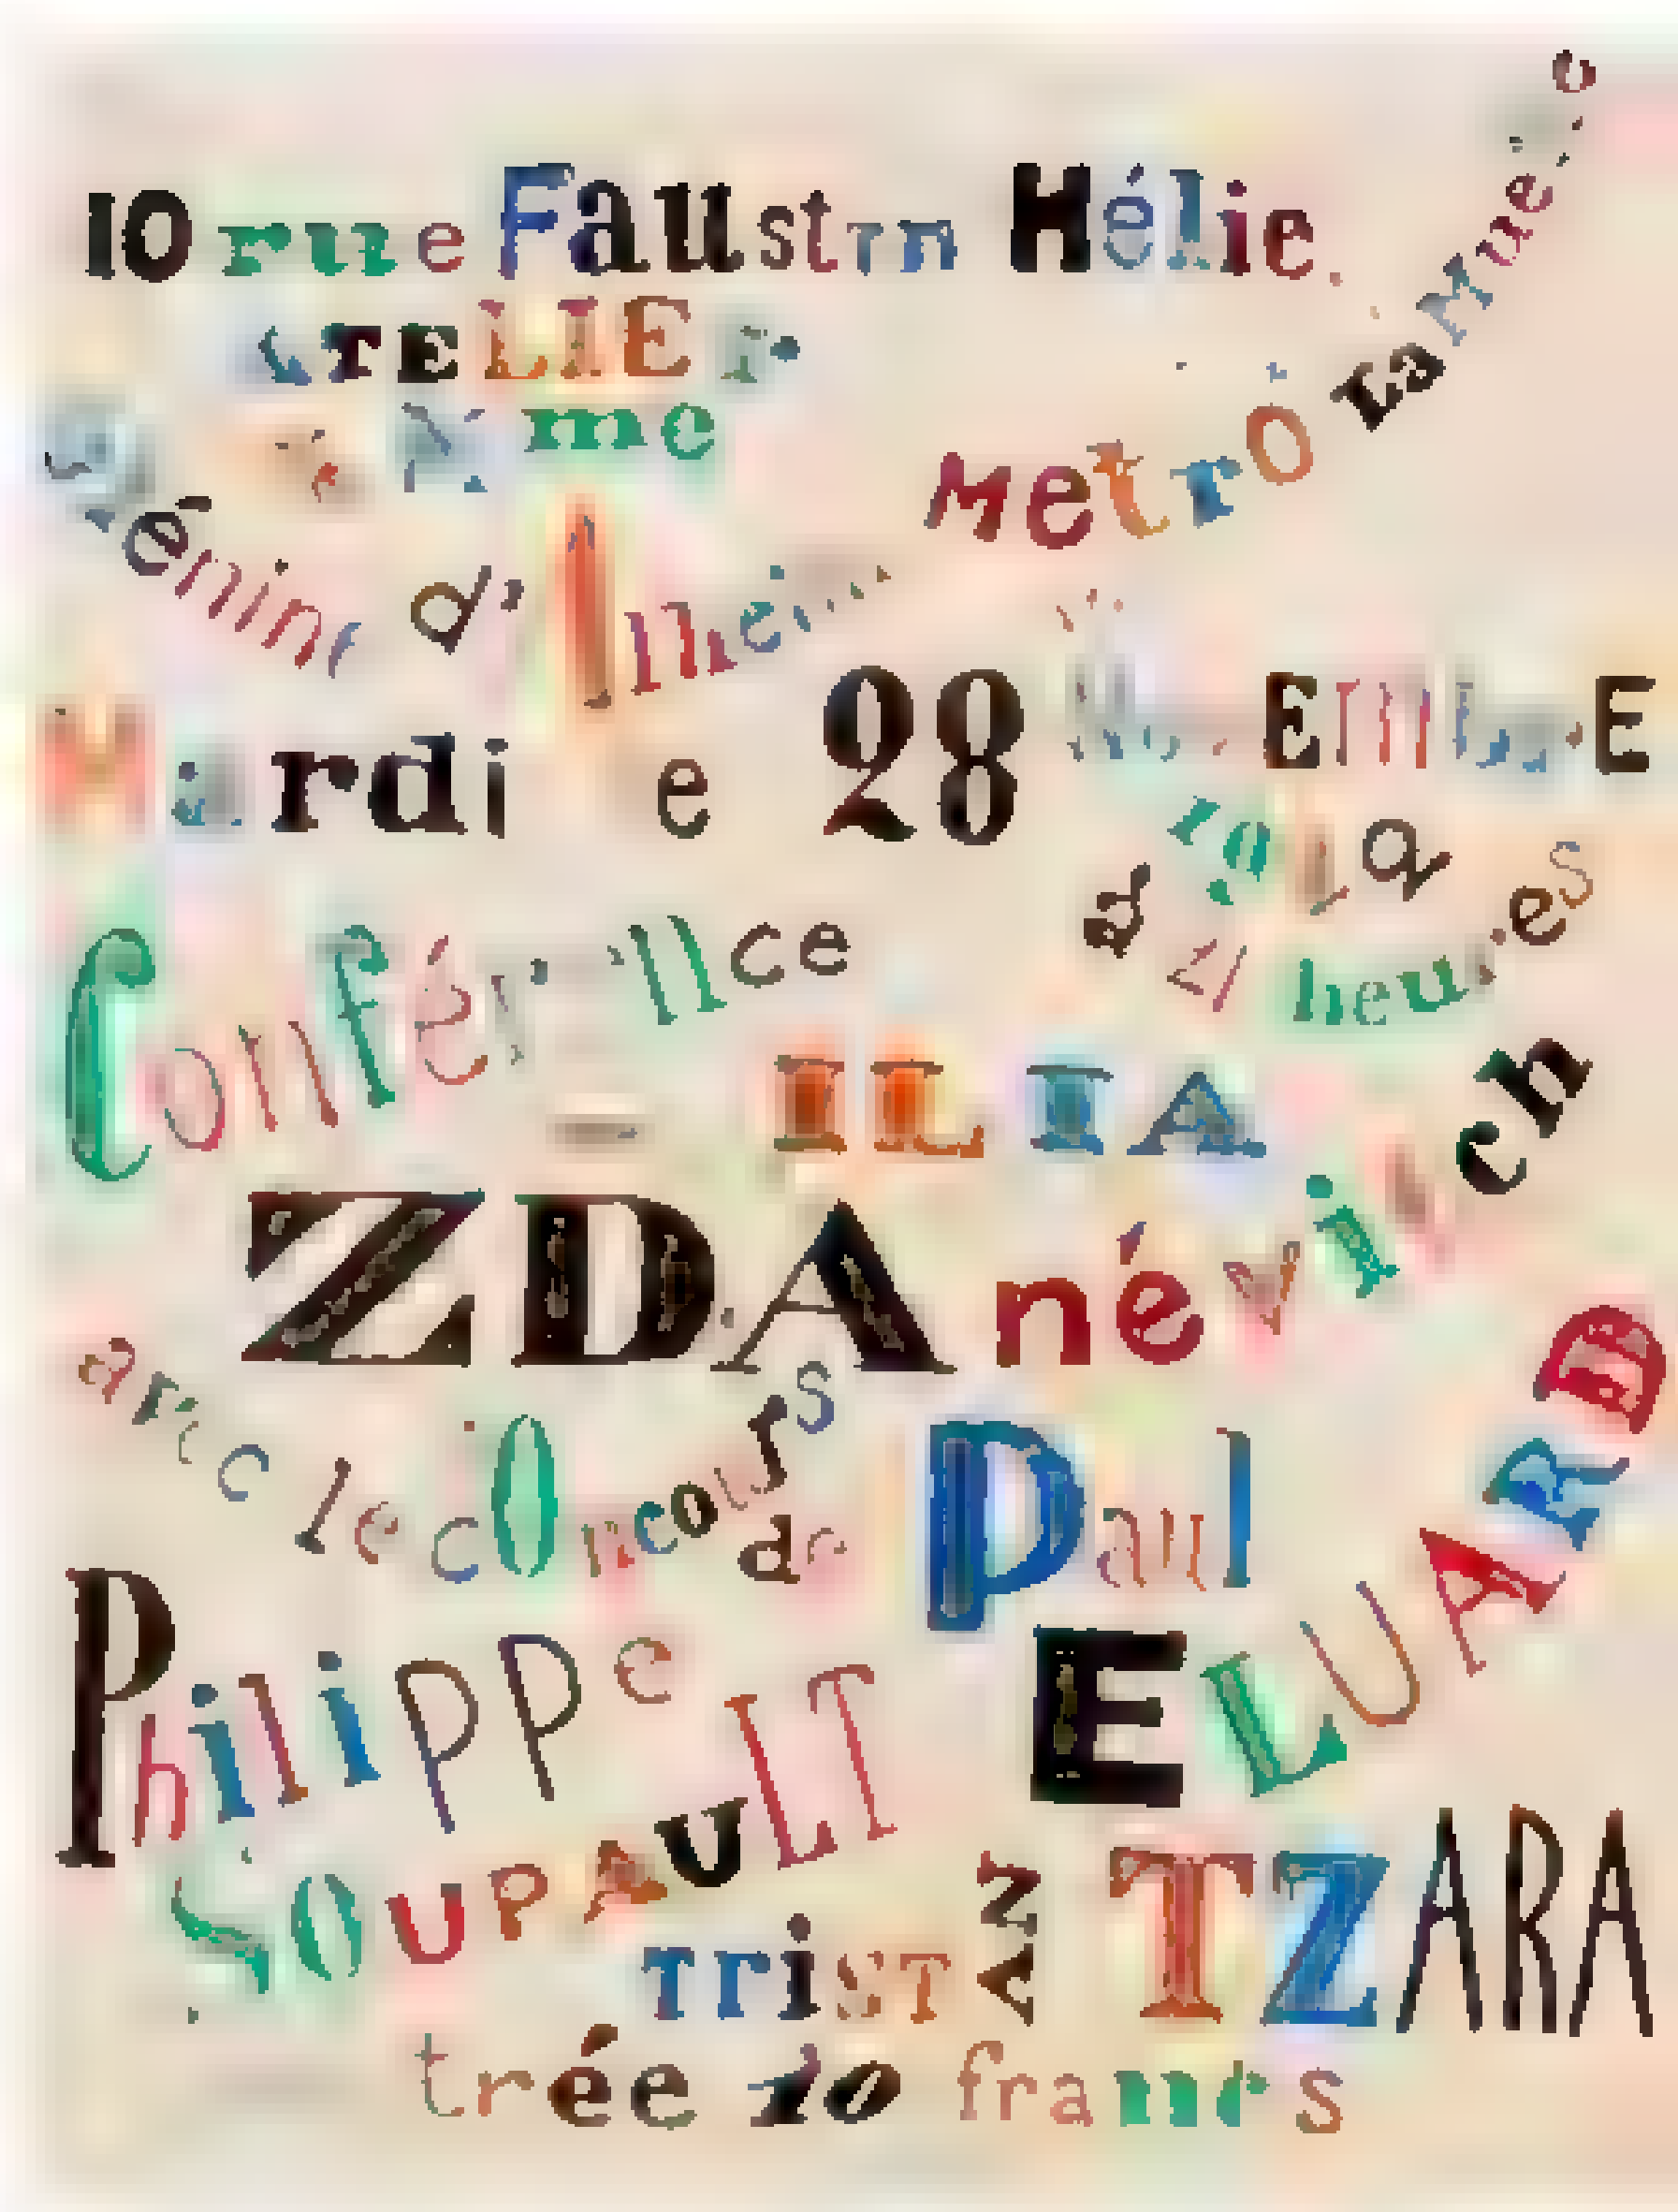 10 rue Faustin Hélie.
Metro La Muette
Mardi le 28 novEmbrE
21 heures
Conférence
ILIA
ZDAnévitch
avec le cOncours de Paul
ELUARD
Philippe
SOUPAULT
TrisTAN TZARA
trée 10 francs